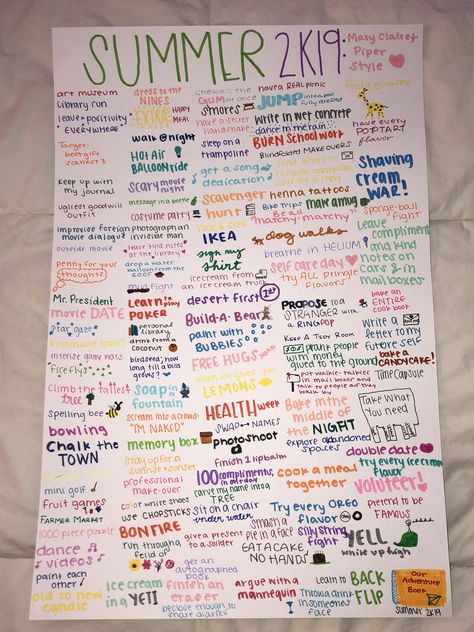 SUMMER 2K19:
Mary Claire + Piper Style
art museum
library run
leave + positivity EVERYWHERE
dress to the NINES
EXTRA HAPPY MEAL
GUM at once
smores
have a secret handshake
have a REAL picnic
JUMP in to a pool fully clothed
write in wet concrete
dance in the rain
BURN School work
Blindfolded MAKEOVERS
have every POPTART flavor
Target: best gift
walk @ night
HOT AIR BALLOON ride
sleep on a trampoline
get a song dedication
Shaving CREAM WAR!
keep up with my journal
scary movie night
message in a bottle
scavenger hunt
henna tattoos
Bike Trips
make a mug
ugliest goodwill outfit
costume party
Be all matchy-matchy
sponge-ball fight
improvise foreign movie dialogue
photograph an invisible man
IKEA
dog walks
leave compliments and kind notes on cars & in mailboxes
outside movie
leave kind notes at the library
sign my shirt
breathe in HELIUM!
penny for your thoughts
drop a water balloon from the roof
ice cream from an ice cream truck
self care day
try ALL pringle flavors
Mr. President
LEARN to play POKER
desert first
1st
PROPOSE to a STRANGER with a RING POP
bake an ENTIRE cook book
movie DATE
Build-A-Bear
star gaze
personal library
paint with BUBBLES
Keep A Tidy Room
Write a letter to my future self
rummage sales
drink from a coconut
intense game nors
birdseed; how long till a bird comes?
FREE HUGS
scare people with money glued to the ground
bake a CANDYCAKE!
fire flys
when life gives you LEMONS
put walkie-talkies in mail boxes and talk to people as they walk by
Time capsule
climb the tallest tree
soap in a fountain
HEALTH week
Bake in the middle of the NIGHT
Take What You Need
spelling bee
scream into a crowd: "I'M NAKED"
SWAP NAMES
bowling
Chalk the TOWN
memory box
photoshoot
explore abandoned spaces
double date
finish 1 lipbalm
stay up for a sunrise + sunset
mini golf
professional make-over
100 compliments, in one day
cook a meal together
try every ice cream flavor
carve my name into a TREE
volunteer!
fruit games
color white shoes
FARMER MARKET
use CHOPSTICKS
Sit on a chair under water
Try every OREO flavor
pretend to be FAMOUS
1000 piece puzzle
BONFIRE
smash a pie in a face
silly string fight
YELL while up high
dance videos
run through a field of
give a present to a soldier
EAT A CAKE NO HANDS
paint each other!
get an autographed book
old to new candle
ice cream in a YETI
finish an eraser
argue with a mannequin
Learn to BACK FLIP
Throw a drink in someones face
because enough to share diaries
Our Adventure Book
summer 2k19